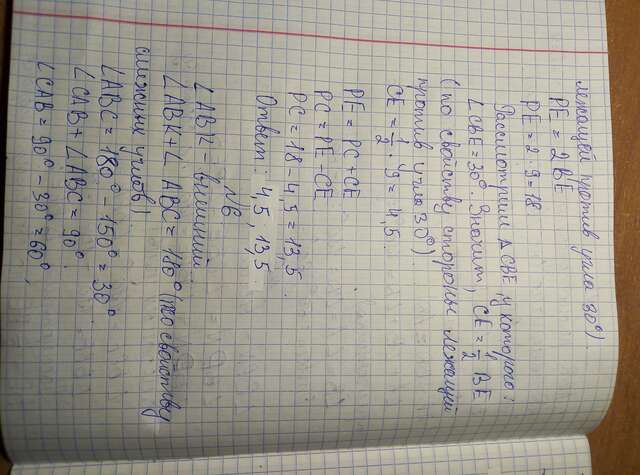 лежащей против угла 30°).
PE = 2BE
PE = 2 · 9 = 18.
Рассмотрим △CBE, у которого:
∠CBE = 30°. Значит, CE = 1/2 BE
(по свойству стороны лежащей
против угла 30°)
CE = 1/2 · 9 = 4,5.
PE = PC + CE
PC = PE - CE
PC = 18 - 4,5 = 13,5.
Ответ: 4,5, 13,5.
№6
∠ABK - внешний
∠ABK + ∠ABC = 180° (по свойству
смежных углов)
∠ABC = 180° - 150° = 30°
∠CAB + ∠ABC = 90°
∠CAB = 90° - 30° = 60°.